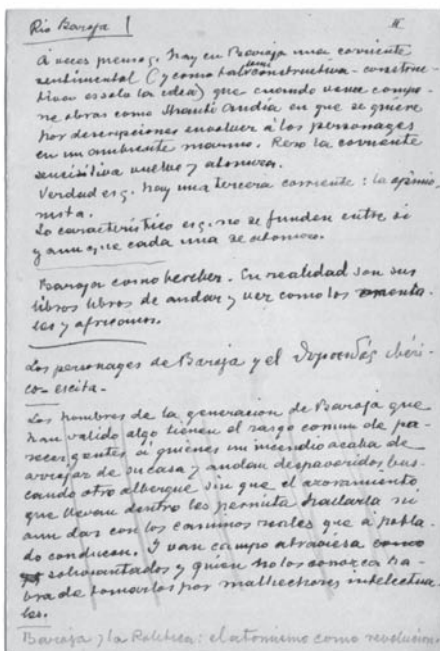 Pío Baroja
A veces pienso q. hay en Baroja una corriente
sentimental (y como tal semi constructiva - construc-
tiva es solo la idea) que cuando vence compo-
ne obras como Shanti Andía en que se quiere
por descripciones envolver á los personages
en un ambiente marino. Pero la corriente
sensitiva vuelve y atomiza.
Verdad es q. hay una tercera corriente: la opinio-
nista.
Lo característico es q. no se funden entre sí
y aun que cada una se atomiza.
Baroja como bereber. En realidad son sus
libros libros de andar y ver como los orienta-
les y africanos.
Los personages de Baroja y el ibéri-
co-escita-
Los hombres de la generación de Baroja que
han valido algo tienen el rasgo comun de pa-
recer gentes á quienes un incendio acaba de
arrojar de su casa y andan despavoridos bus-
cando otro albergue sin que el azoramiento
que llevan dentro les permita hallarla ni
aun dar con los caminos reales que á pobla-
do conducen. Y van campo atraviesa como
soliviantados y quien no los conozca ha-
bra de tomarlos por malhechores intelectua-
les.
Baroja y la Política: el atomismo como revolucion